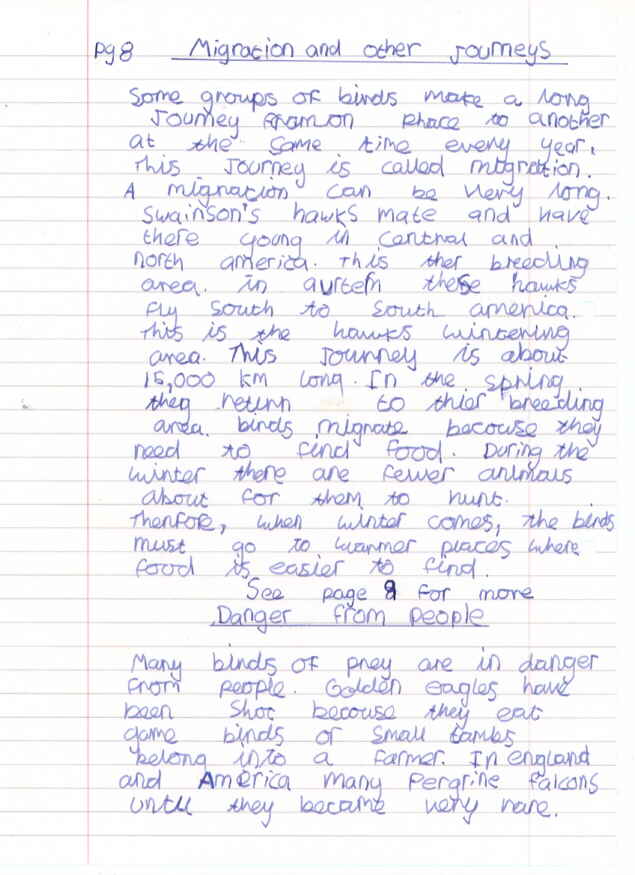 pg 8 Migration and other journeys
Some groups of birds make a long
Journey from on phace to another
at the same time every year.
This Journey is called migration.
A migration can be very long.
Swainson's hawks mate and have
there young in central and
north america. This ther breeding
area. in aurtem these hawks
fly South to South america.
This is the hawks wintering
area. This Journey is about
15,000 km long. In the spring
they return to thier breeding
area. birds migrate becouse they
need to find food. During the
winter there are fewer animals
about for them to hunt.
Therfore, when winter comes, the birds
must go to warmer places where
food is easier to find.
See page 9 for more
Danger from people
Many birds of prey are in danger
from people. Golden eagles have
been shot becouse they eat
game birds or small lambs
belong into a farmer. In england
and America many Pergrine falcons
until they became very rare.